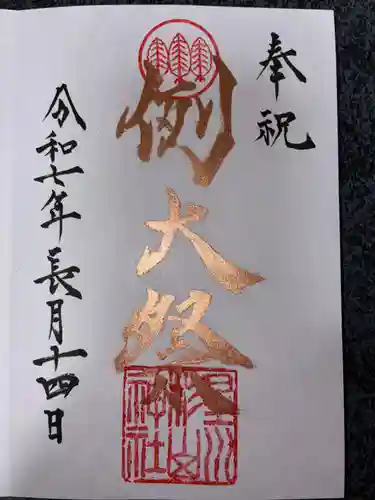 奉祝
例大祭
令和七年長月十四日